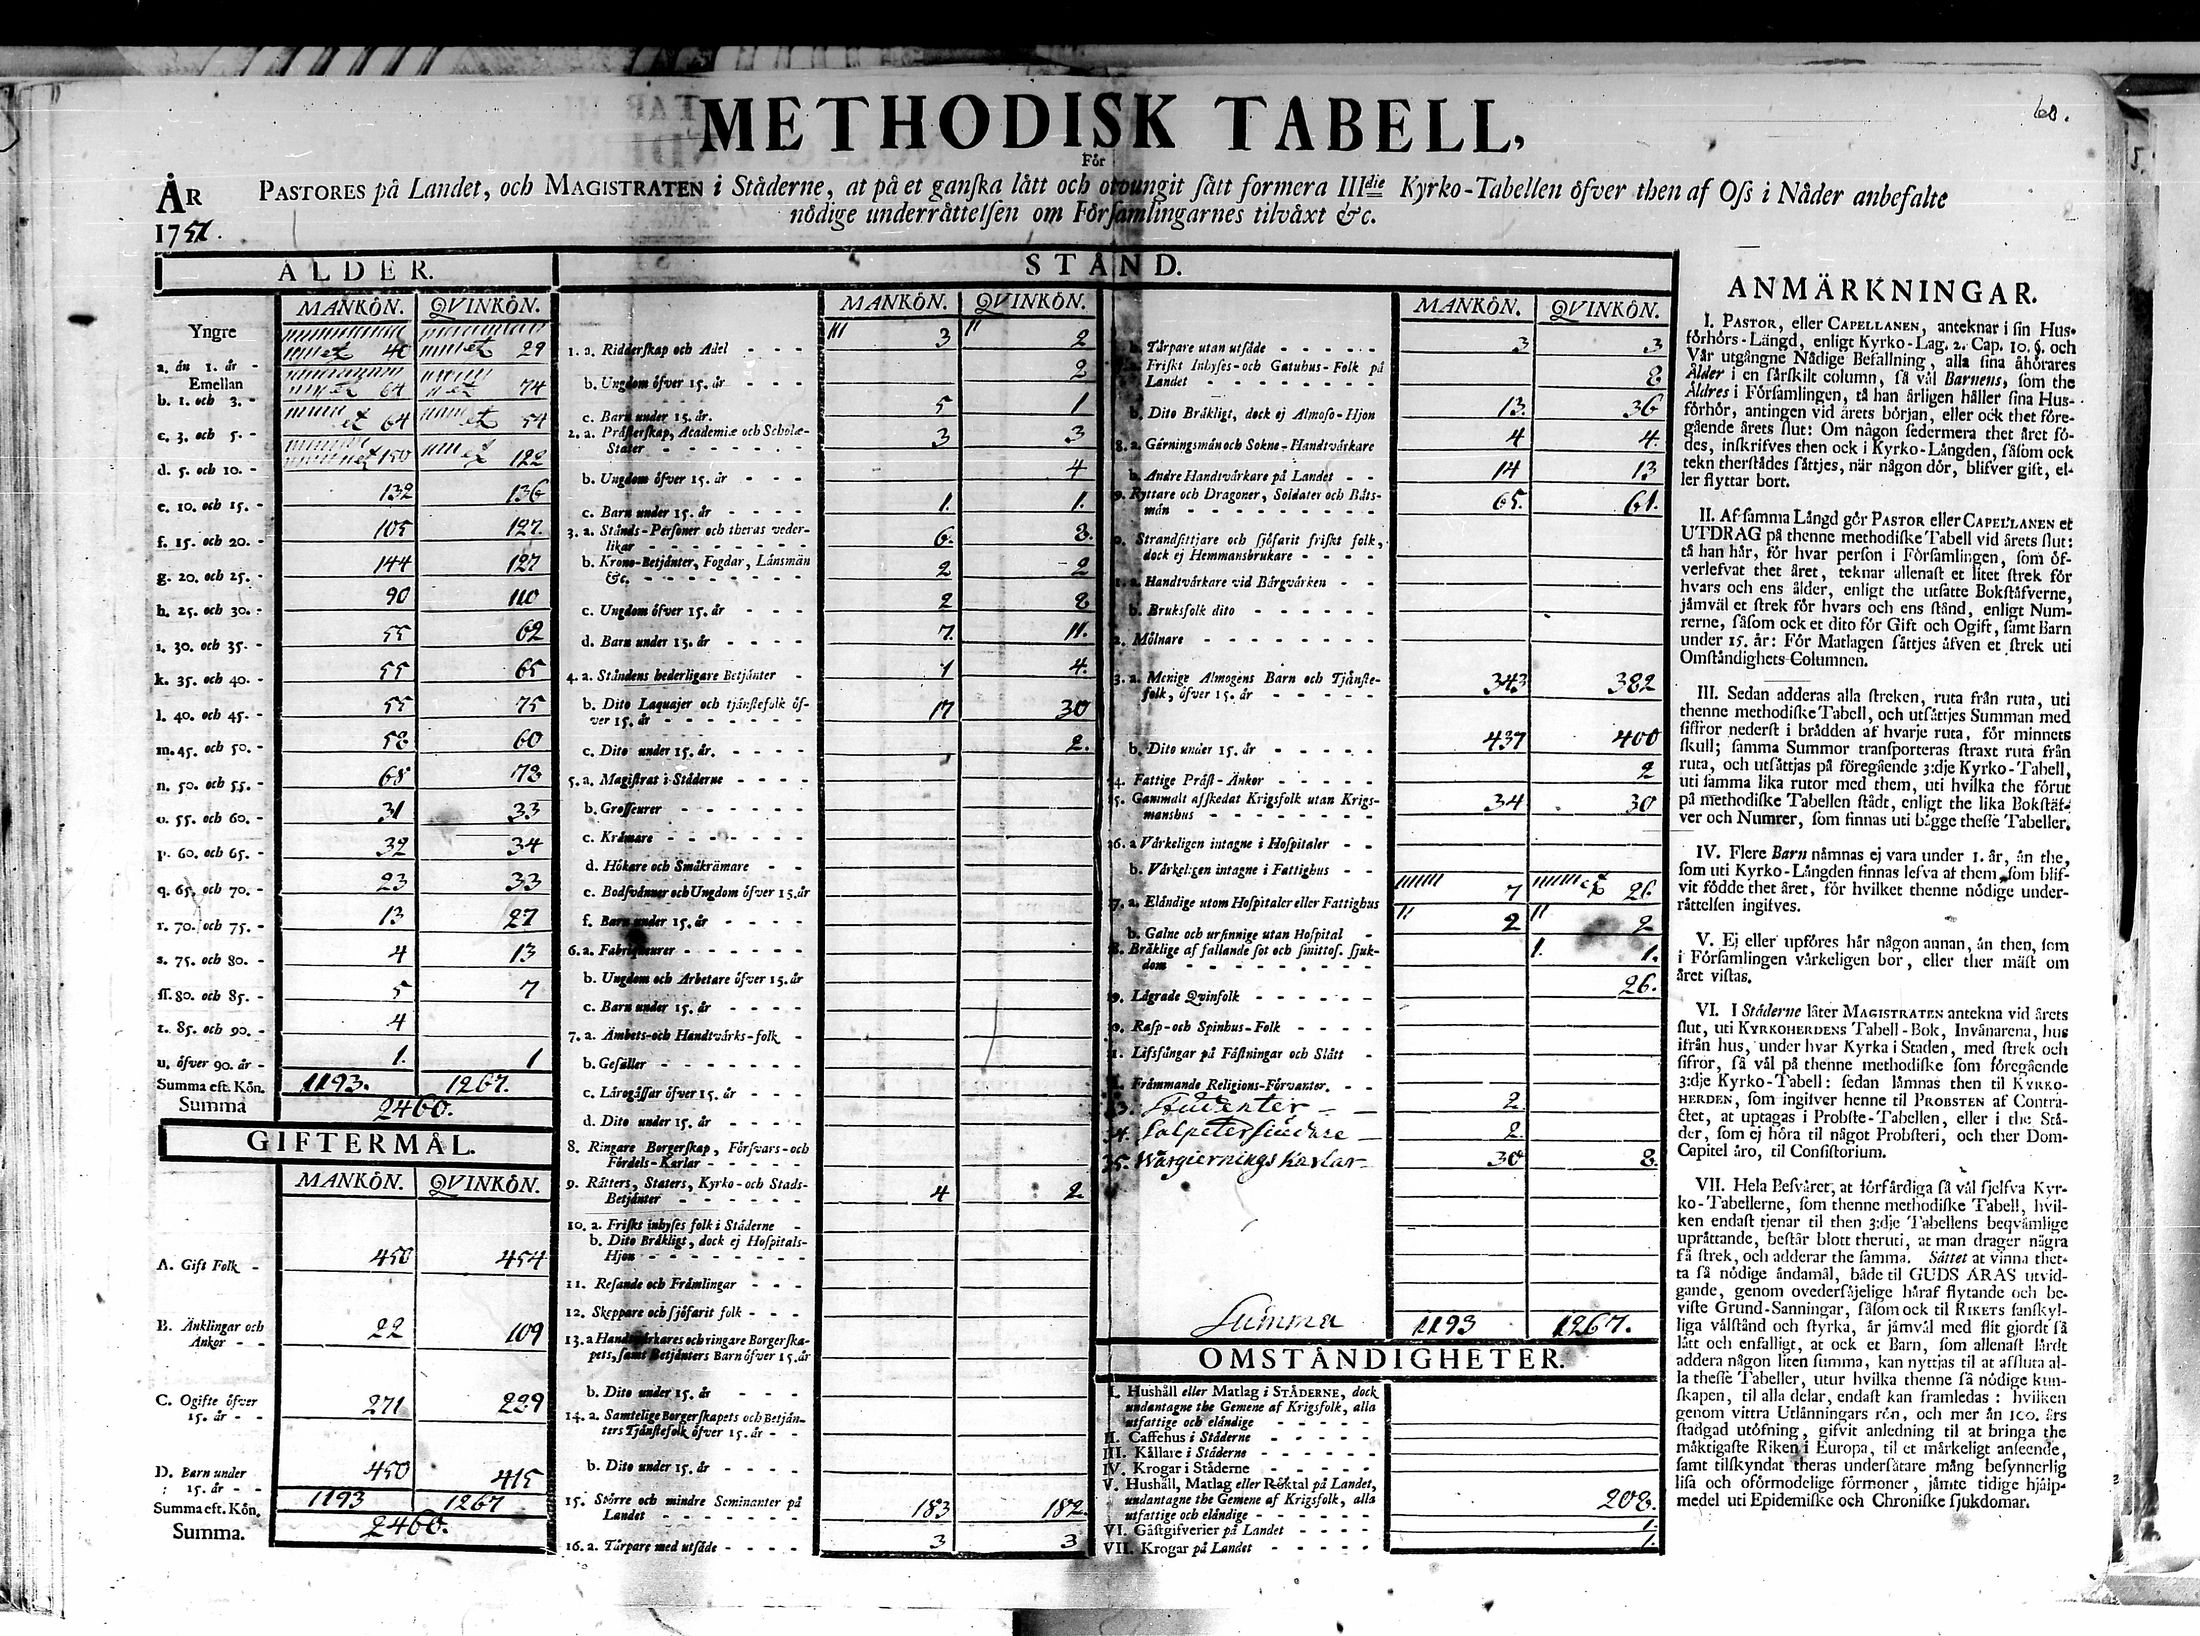 60.
METHODISK TABELL,
För
PASTORES på Landet, och MAGISTRATEN i Städerne, at på et ganſka lätt och otvungit ſätt formera IIIdie Kyrko-Tabellen öfver then af Oſs i Nåder anbefalte
nödige underrättelſen om Förſamlingarnes tilväxt &c.
ÅR
1751.
ÅLDER.
MANKÖN. QVINKÖN.
Yngre
a. än 1. år - et 40 et 29
Emellan
b. 1. och 3. - et 64 et 74
c. 3. och 5. - et 64 et 54
d. 5. och 10. - et 150 et 122
e. 10. och 15. - 132 136
f. 15. och 20. - 105 127.
g. 20. och 25. - 144 127
h. 25. och 30. - 90 110
i. 30. och 35. - 55 62
k. 35. och 40. - 55 65
l. 40. och 45. - 55 75
m. 45. och 50. - 58 60
n. 50. och 55. - 68 73
o. 55. och 60. - 31 33
p. 60. och 65. - 32 34
q. 65. och 70. - 23 33
r. 70. och 75. - 13 27
s. 75. och 80. - 4 13
ſſ. 80. och 85. - 5 7
t. 85. och 90. - 4
u. öfver 90. år - 1. 1
Summa eft. Kön. 1193. 1267.
Summa 2460.
GIFTERMÅL.
MANKÖN. QVINKÖN.
A. Gift Folk - 450 454
B. Änklingar och
Änkor - - 22 109
C. Ogifte öfver
15. år - - 271 289
D. Barn under
15. år - - 450 415
Summa eft. Kön. 1193 1267
Summa. 2460.
STÅND.
MANKÖN. QVINKÖN.
1. a. Ridderſkap och Adel - - - 3 2
b. Ungdom öfver 15. år - - - 2
c. Barn under 15. år. - - - 5 1
2. a. Präſterſkap, Academiæ och Scholæ-
Stater - - - - - - 3 3
b. Ungdom öfver 15. år - - - 4
c. Barn under 15. år - - - 1. 1.
3. a. Stånds-Perſoner och theras veder-
likar - - - - - - 6. 8.
b. Krono-Betjänter, Fogdar, Länsmän
&c. - - - - - - - 2 2
c. Ungdom öfver 15. år - - - 2 8
d. Barn under 15. år - - - 7. 11.
4. a. Ståndens hederligare Betjänter - 1 4.
b. Dito Laquajer och tjänſtefolk öf-
ver 15. år - - - - - - 17 30
c. Dito under 15. år. - - - - 2.
5. a. Magiſtrat i Städerne - - - -
b. Groſſeurer - - - - - -
c. Krämare - - - - - - -
d. Hökare och Småkrämare - -
e. Bodſvänner och Ungdom öfver 15. år
f. Barn under 15. år - - - -
6. a. Fabriqueurer - - - - - -
b. Ungdom och Arbetare öfver 15. år
c. Barn under 15. år - - - -
7. a. Ämbets-och Handtvärks-folk -
b. Geſäller - - - - - - -
c. Lärogåſſar öfver 15. år - - -
d. Dito under 15. år - - - -
8. Ringare Borgerſkap, Förſvars-och
Fördels-Karlar - - - - -
9. Rätters, Staters, Kyrko-och Stads-
Betjänter - - - - - - 4 2
10. a. Friſkt inhyſes folk i Städerne -
b. Dito Bräkligt, dock ej Hoſpitals-
Hjon - - - - - - - -
11. Reſande och Främlingar - - -
12. Skeppare och ſjöfarit folk - - -
13. a Handtvärkares och ringare Borgerſka-
pets, ſamt Betjänters Barn öfver 15. år
b. Dito under 15. år - - - -
14. a. Samtelige Borgerſkapets och Betjän-
ters Tjänſtefolk öfver 15. år - -
b. Dito under 15. år - - - -
15. Större och mindre Seminanter på
Landet - - - - - - - 183 182.
16. a. Tärpare med utſäde - - - - 3 3
MANKÖN. QVINKÖN.
b. Tärpare utan utſäde - - - - - 3 3
Friſkt Inhyſes-och Gatuhus-Folk på
Landet - - - - - - - - 8
b. Dito Bräkligt, dock ej Almoſo-Hjon 13. 36
8. a. Gerningsmän och Sokne-Handtvärkare 4 4.
b. Andre Handtvärkare på Landet - - 14 13
9. Ryttare och Dragoner, Soldater och Båts-
män - - - - - - - - - 65. 61.
0. Strandſittjare och ſjöfarit friſkt folk,
dock ej Hemmansbrukare - - - -
1. a. Handtvärkare vid Bärgvärken - -
b. Bruksfolk dito - - - - - -
2. Mölnare - - - - - - - -
3. a. Menige Almogens Barn och Tjänſte-
folk, öfver 15. år - - - - - 343 382
b. Dito under 15. år - - - - - 437 400
4. Fattige Präſt-Änkor - - - - 2
5. Gammalt afſkedat Krigsfolk utan Krigs-
manshus - - - - - - - - 34 30
26. a Värkeligen intagne i Hoſpitaler - -
b. Värkeligen intagne i Fattighus - -
7. a. Eländige utom Hoſpitaler eller Fattighus 7 et 26.
b. Galne och urſinnige utan Hoſpital - 2 2
8. Bräklige af fallande ſot och ſmittoſ. ſjuk-
dom - - - - - - - - 1. 1.
9. Lägrade Qvinfolk - - - - - - 26.
0. Raſp-och Spinhus-Folk - - - -
1. Lifsfångar på Fäſtningar och Slått -
Främmande Religions-Förvanter. - -
3. Studenter - - 2
34. Salpetersiudare - 2
35. Wärgiernings Karlar - 30 8.
Summa 1193 1267.
OMSTÄNDIGHETER.
I. Hushåll eller Matlag i STÄDERNE, dock
undantagne the Gemene af Krigsfolk, alla
utfattige och eländige - - - - -
II. Caffehus i Städerne - - - - -
III. Källare i Städerne - - - - - -
IV. Krogar i Städerne - - - - -
V. Hushåll, Matlag eller Röktal på Landet,
undantagne the Gemene af Krigsfolk, alla
utfattige och eländige - - - - - 208.
VI. Gäſtgifverier på Landet - - - - 1.
VII. Krogar på Landet - - - - - 1.
ANMÄRKNINGAR.
I. PASTOR, eller CAPELLANEN, anteknar i ſin Hus-
förhörs-Längd, enligt Kyrko-Lag. 2. Cap. 10. §. och
Vår utgångne Nådige Befallning, alla ſina åhörares
Ålder i en ſärſkilt column, ſå väl Barnens, ſom the
Äldres i Förſamlingen, tå han årligen håller ſina Hus-
förhör, antingen vid årets början, eller ock thet före-
gående årets ſlut: Om någon ſedermera thet året fö-
des, inſkrifves then ock i Kyrko-Längden, ſåſom ock
tekn therſtädes ſättjes, när någon dör, blifver gift, el-
ler flyttar bort.
II. Af ſamma Längd gör PASTOR eller CAPELLANEN et
UTDRAG på thenne methodiſke Tabell vid årets ſlut:
tå han här, för hvar perſon i Förſamlingen, ſom öf-
verlefvat thet året, teknar allenaſt et litet ſtrek för
hvars och ens ålder, enligt the utſatte Bokſtäfverne,
jämväl et ſtrek för hvars och ens ſtånd, enligt Num-
rerne, ſåſom ock et dito för Gift och Ogift, ſamt Barn
under 15. år: För Matlagen ſättjes äfven et ſtrek uti
Omſtändighets-Columnen.
III. Sedan adderas alla ſtreken, ruta från ruta, uti
thenne methodiſke Tabell, och utſättjes Summan med
ſiffror nederſt i brädden af hvarje ruta, för minnets
ſkull; ſamma Summor transporteras ſtraxt ruta från
ruta, och utſättjas på föregående 3:dje Kyrko-Tabell,
uti ſamma lika rutor med them, uti hvilka the förut
på methodiſke Tabellen ſtådt, enligt the lika Bokſtäf-
ver och Numrer, ſom finnas uti bägge theſſe Tabeller.
IV. Flere Barn nämnas ej vara under 1. år, än the,
ſom uti Kyrko-Längden finnas lefva af them, ſom blif-
vit födde thet året, för hvilket thenne nödige under-
rättelſen ingifves.
V. Ej eller upföres här någon annan, än then, ſom
i Förſamlingen värkeligen bor, eller ther mäſt om
året viſtas.
VI. I Städerne låter MAGISTRATEN antekna vid årets
ſlut, uti KYRKOHERDENS Tabell-Bok, Invånarena, hus
ifrån hus, under hvar Kyrka i Staden, med ſtrek och
ſifror, ſå väl på thenne methodiſke ſom föregående
3:dje Kyrko-Tabell: ſedan lämnas then til KYRKO-
HERDEN, ſom ingifver henne til PROBSTEN af Contra-
ctet, at uptagas i Probſte-Tabellen, eller i the Stä-
der, ſom ej höra til något Probſteri, och ther Dom-
Capitel äro, til Conſiſtorium.
VII. Hela Beſväret, at förfärdiga ſå väl ſjelfva Kyr-
ko-Tabellerne, ſom thenne methodiſke Tabell, hvil-
ken endaſt tjenar til then 3:dje Tabellens beqvämlige
uprättande, beſtår blott theruti, at man drager några
få ſtrek, och adderar the ſamma. Sättet at vinna thet-
ta ſå nödige ändamål, både til GUDS ÄRAS utvid-
gande, genom overderſäjelige häraf flytande och be-
viſte Grund-Sanningar, ſåſom ock til RIKETS ſanſkyl-
liga välſtånd och ſtyrka, är jämväl med flit gjordt ſå
lätt och enfalligt, at ock et Barn, ſom allenaſt lärdt
addera någon liten ſumma, kan nyttjas til at afſluta al-
la theſſe Tabeller, utur hvilka thenne ſå nödige kun-
ſkapen, til alla delar, endaſt kan framledas: hvilken
genom vittra Utlänningars rön, och mer än 100. års
ſtadgad utöfning, gifvit anledning til at bringa the
mäktigaſte Riken i Europa, til et märkeligt anſeende,
ſamt tilſkyndat theras underſåtare mång beſynnerlig
liſa och oförmodelige förmoner, jämte tidige hjälp-
medel uti Epidemiſke och Chroniſke ſjukdomar.